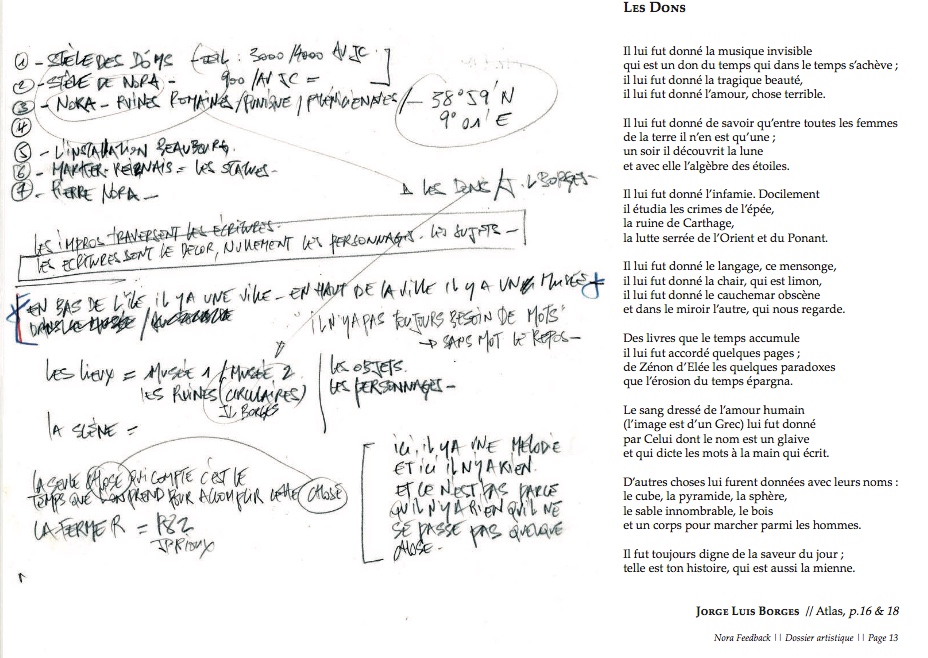 ① - STÈLE DES DÔMS - ŒIL : 3000 / 4000 AV JC
② - STÈLE DE NORA - 900 / AV JC =
③ - NORA - RUINES ROMAINES / PUNIQUE / PHÉNICIENNES / - 38°59'N
9°01'E
④
⑤ - L'INSTALLATION BEAUBOURG.
⑥ - MARKER - RESNAIS = LES STATUES -
⑦ - PIERRE NORA -
LES DONS / J. L BORGES -
LES IMPROS TRAVERSENT LES ÉCRITURES.
LES ECRITURES SONT LE DECOR, NULLEMENT LES PERSONNAGES. LES SUJETS -
EN BAS DE L'ÎLE IL Y A UNE VILLE - EN HAUT DE LA VILLE IL Y A UN MUSÉE
DANS LE MUSÉE /
"IL N'Y A PAS TOUJOURS BESOIN DE MOTS"
→ SANS MOT LE REPOS -
LES LIEUX = MUSÉE 1 / MUSÉE 2
LES RUINES (CIRCULAIRES)
JL BORGES
LES OBJETS.
LES PERSONNAGES -
LA SCÈNE =
LA SEULE CHOSE QUI COMPTE C'EST LE
TEMPS QUE L'ON PREND POUR ACCOMPLIR CETTE CHOSE
LA FERMER = P82
JP RIOUX
ICI, IL Y A UNE MELODIE
ET ICI IL N'Y A RIEN.
ET CE N'EST PAS PARCE
QU'IL N'Y A RIEN QU'IL NE
SE PASSE PAS QUELQUE
CHOSE.
LES DONS
Il lui fut donné la musique invisible
qui est un don du temps qui dans le temps s'achève ;
il lui fut donné la tragique beauté,
il lui fut donné l'amour, chose terrible.
Il lui fut donné de savoir qu'entre toutes les femmes
de la terre il n'en est qu'une ;
un soir il découvrit la lune
et avec elle l'algèbre des étoiles.
Il lui fut donné l'infamie. Docilement
il étudia les crimes de l'épée,
la ruine de Carthage,
la lutte serrée de l'Orient et du Ponant.
Il lui fut donné le langage, ce mensonge,
il lui fut donné la chair, qui est limon,
il lui fut donné le cauchemar obscène
et dans le miroir l'autre, qui nous regarde.
Des livres que le temps accumule
il lui fut accordé quelques pages ;
de Zénon d'Elée les quelques paradoxes
que l'érosion du temps épargna.
Le sang dressé de l'amour humain
(l'image est d'un Grec) lui fut donné
par Celui dont le nom est un glaive
et qui dicte les mots à la main qui écrit.
D'autres choses lui furent données avec leurs noms :
le cube, la pyramide, la sphère,
le sable innombrable, le bois
et un corps pour marcher parmi les hommes.
Il fut toujours digne de la saveur du jour ;
telle est ton histoire, qui est aussi la mienne.
JORGE LUIS BORGES // Atlas, p.16 & 18
Nora Feedback || Dossier artistique || Page 13